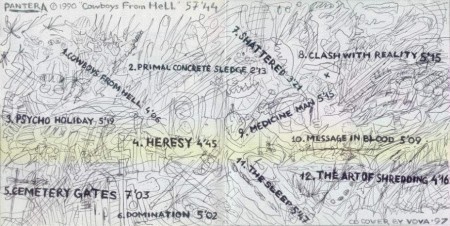 PANTERA © 1990 'Cowboys From Hell' 57'44
1. COWBOYS FROM HELL 4'06
2. PRIMAL CONCRETE SLEDGE 2'13
3. PSYCHO HOLIDAY 5'19
4. HERESY 4'45
5. CEMETERY GATES 7'03
6. DOMINATION 5'02
7. SHATTERED 3'21
8. CLASH WITH REALITY 5'15
9. MEDICINE MAN 5'15
10. MESSAGE IN BLOOD 5'09
11. THE SLEEP 5'47
12. THE ART OF SHREDDING 4'16
CD COVER BY VOVA '97